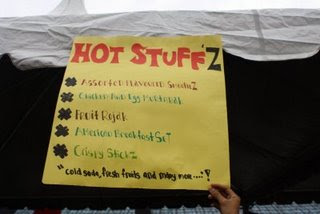 HOT STUFF'Z
Assorted Flavoured Smoothiz
Chicken And Egg Murtabak
Fruit Rojak
American Breakfast Set
Crispy Stickz
"Cold soda, fresh fruits and many more....."!